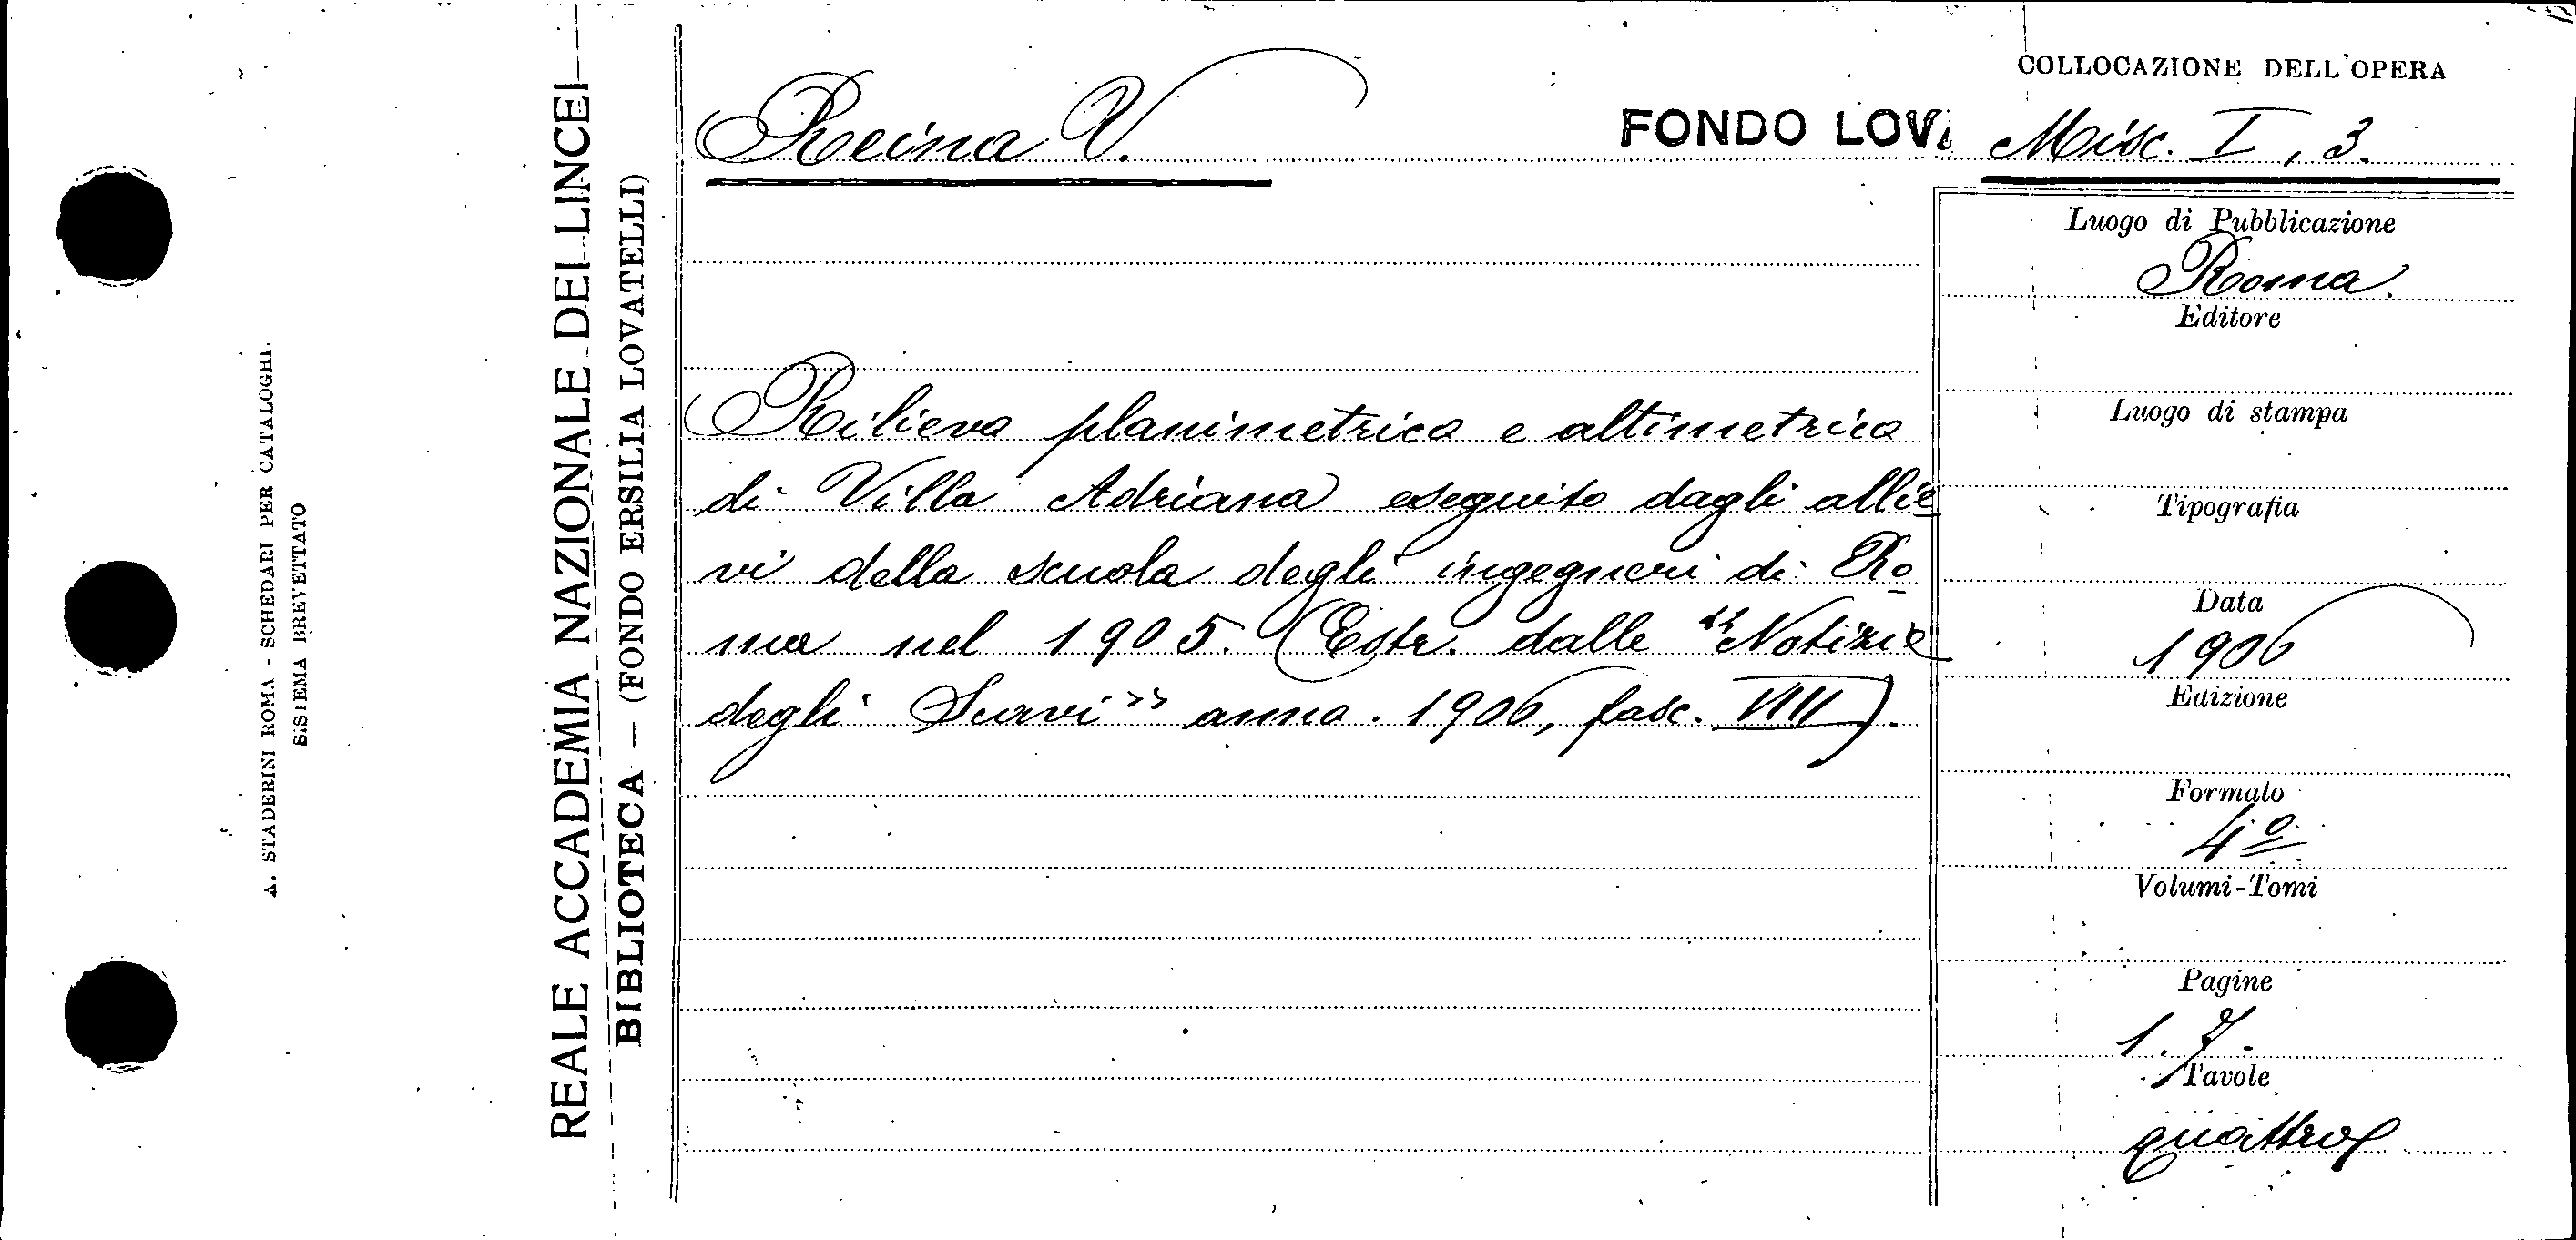 A. STADERINI ROMA - SCHEDARI PER CATALOGHI.
SISTEMA BREVETTATO
REALE ACCADEMIA NAZIONALE DEI LINCEI
BIBLIOTECA — (FONDO ERSILIA LOVATELLI)
Reina V.
FONDO LOV
COLLOCAZIONE DELL'OPERA
Misc. I, 3.
Rilievo planimetrico e altimetrico
di Villa Adriana eseguito dagli allie
vi della scuola degli ingegneri di Ro
ma nel 1905. (Estr. dalle "Notizie
degli Scavi" anno. 1906, fasc. VIII).
Luogo di Pubblicazione
Roma.
Editore
Luogo di stampa
Tipografia
Data
1906
Edizione
Formato
4º
Volumi-Tomi
Pagine
1.7.
Tavole
quattro